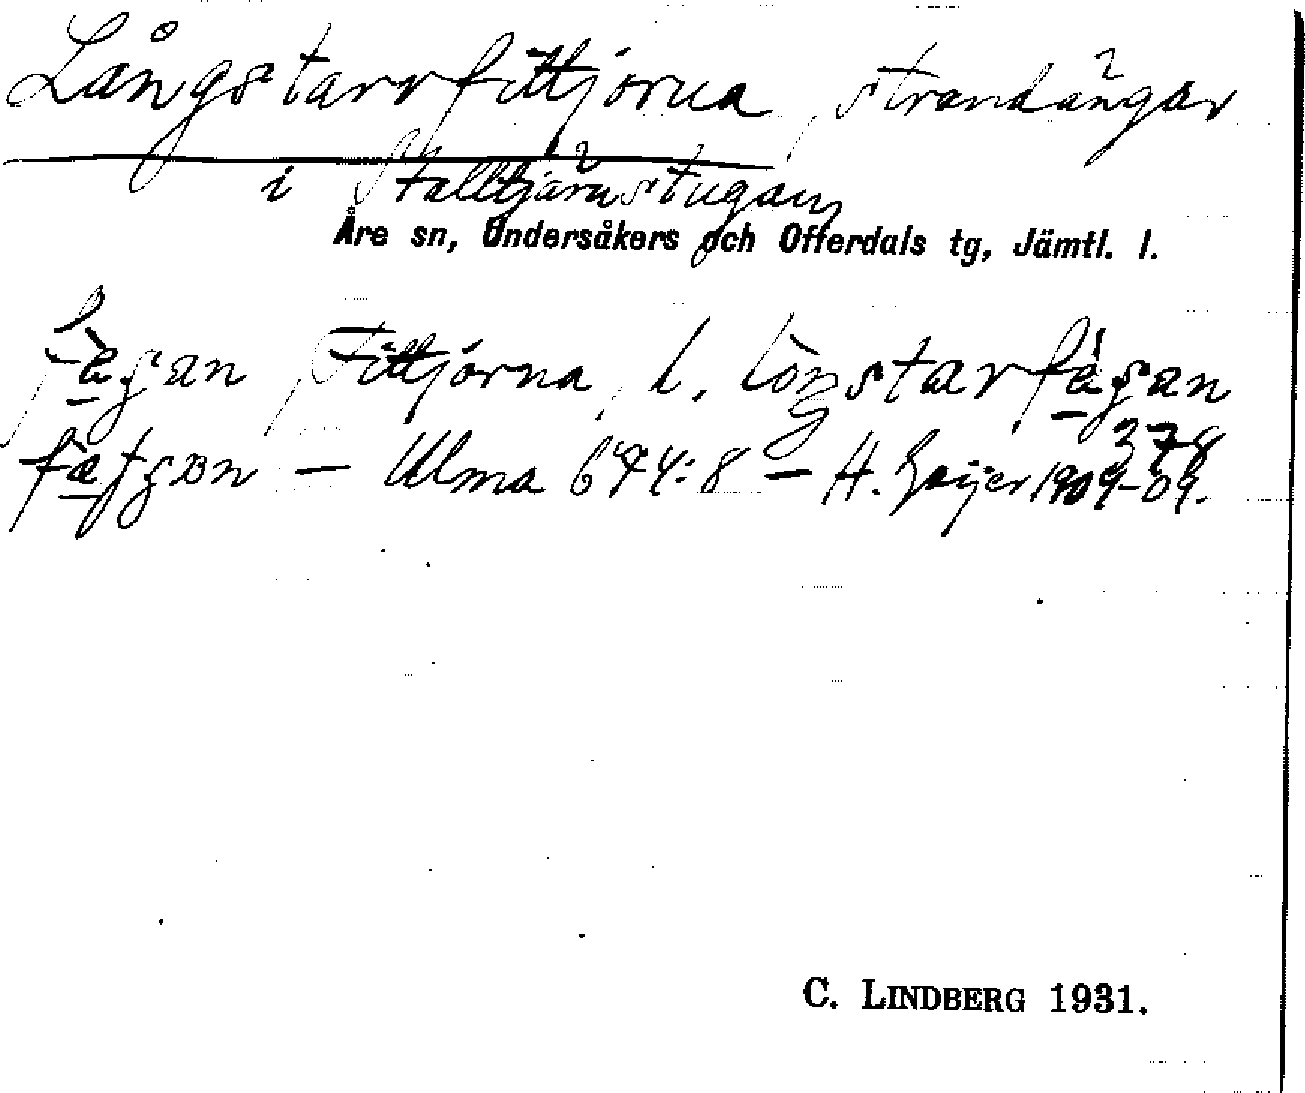 Långstarrfittjorna, strandängar
i Stalltjärnstugan
Åre sn, Undersåkers och Offerdals tg, Jämtl. l.
fàgan, Fittjórna, l. lòngstarfágan
378
fàtgɷn — Ulma 644:8 — H. Geijer 1909-09.
C. LINDBERG 1931.